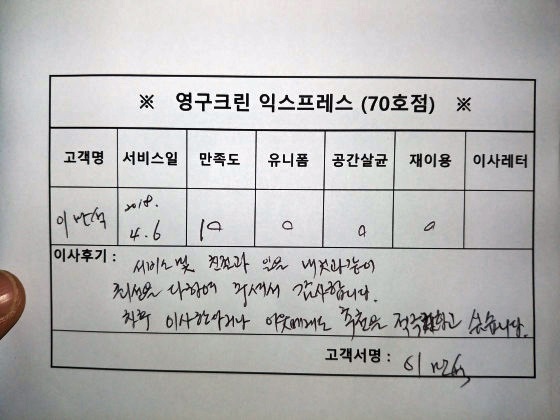 ※ 영구크린 익스프레스 (70호점) ※
고객명 서비스일 만족도 유니폼 공간살균 재이용 이사레터
이만석 2018. 4.6 10 0 0 0
이사후기 : 서비스 및 친절과 일은 내것과같이
최선을 다하여 주셔서 감사합니다.
차후 이사한다거나 이웃에게도 추천을 적극하고 싶습니다.
고객서명 : 이만석